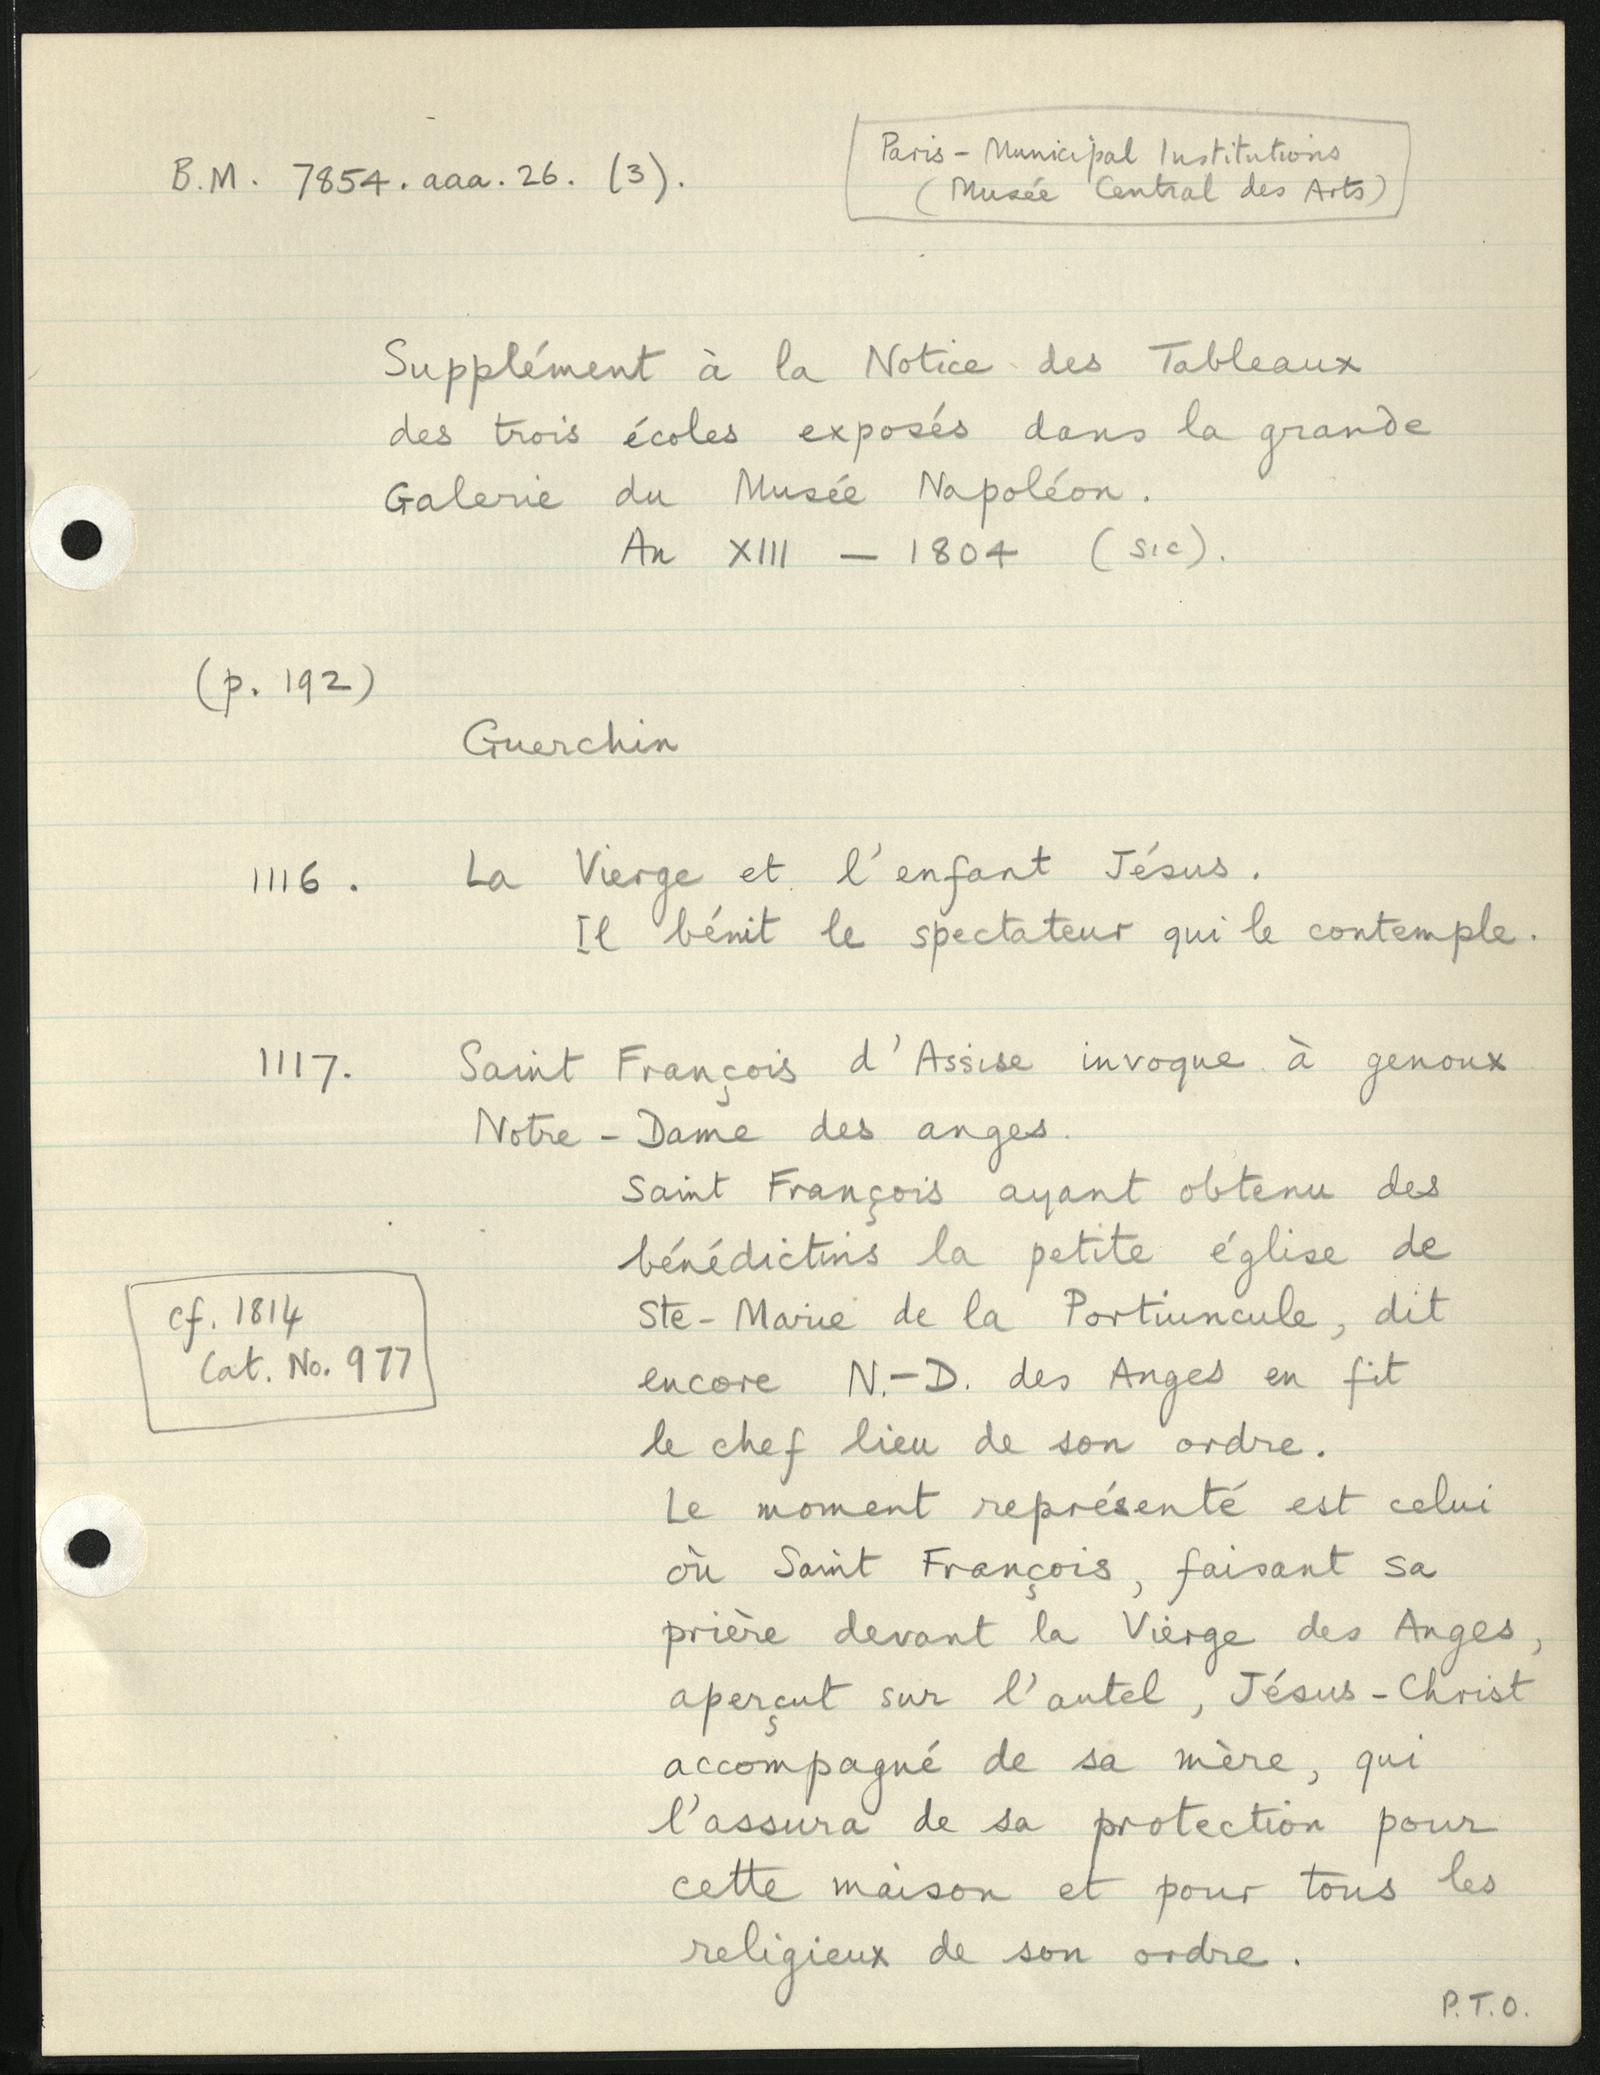 B.M. 7854.aaa.26. (3).
Paris - Municipal Institutions
(Musée Central des Arts)
Supplément à la Notice des Tableaux
des trois écoles exposés dans la grande
Galerie du Musée Napoléon.
An XIII — 1804 (sic).
(p. 192)
Guerchin
1116. La Vierge et l'enfant Jésus.
Il bénit le spectateur qui le contemple.
1117. Saint François d'Assise invoque à genoux
Notre-Dame des anges.
Saint François ayant obtenu des
bénédictins la petite église de
Ste-Marie de la Portiuncule, dit
encore N.-D. des Anges en fit
le chef lieu de son ordre.
cf. 1814
Cat. No. 977
Le moment représenté est celui
où Saint François, faisant sa
prière devant la Vierge des Anges,
aperçut sur l'autel, Jésus-Christ
accompagné de sa mère, qui
l'assura de sa protection pour
cette maison et pour tous les
religieux de son ordre.
P.T.O.